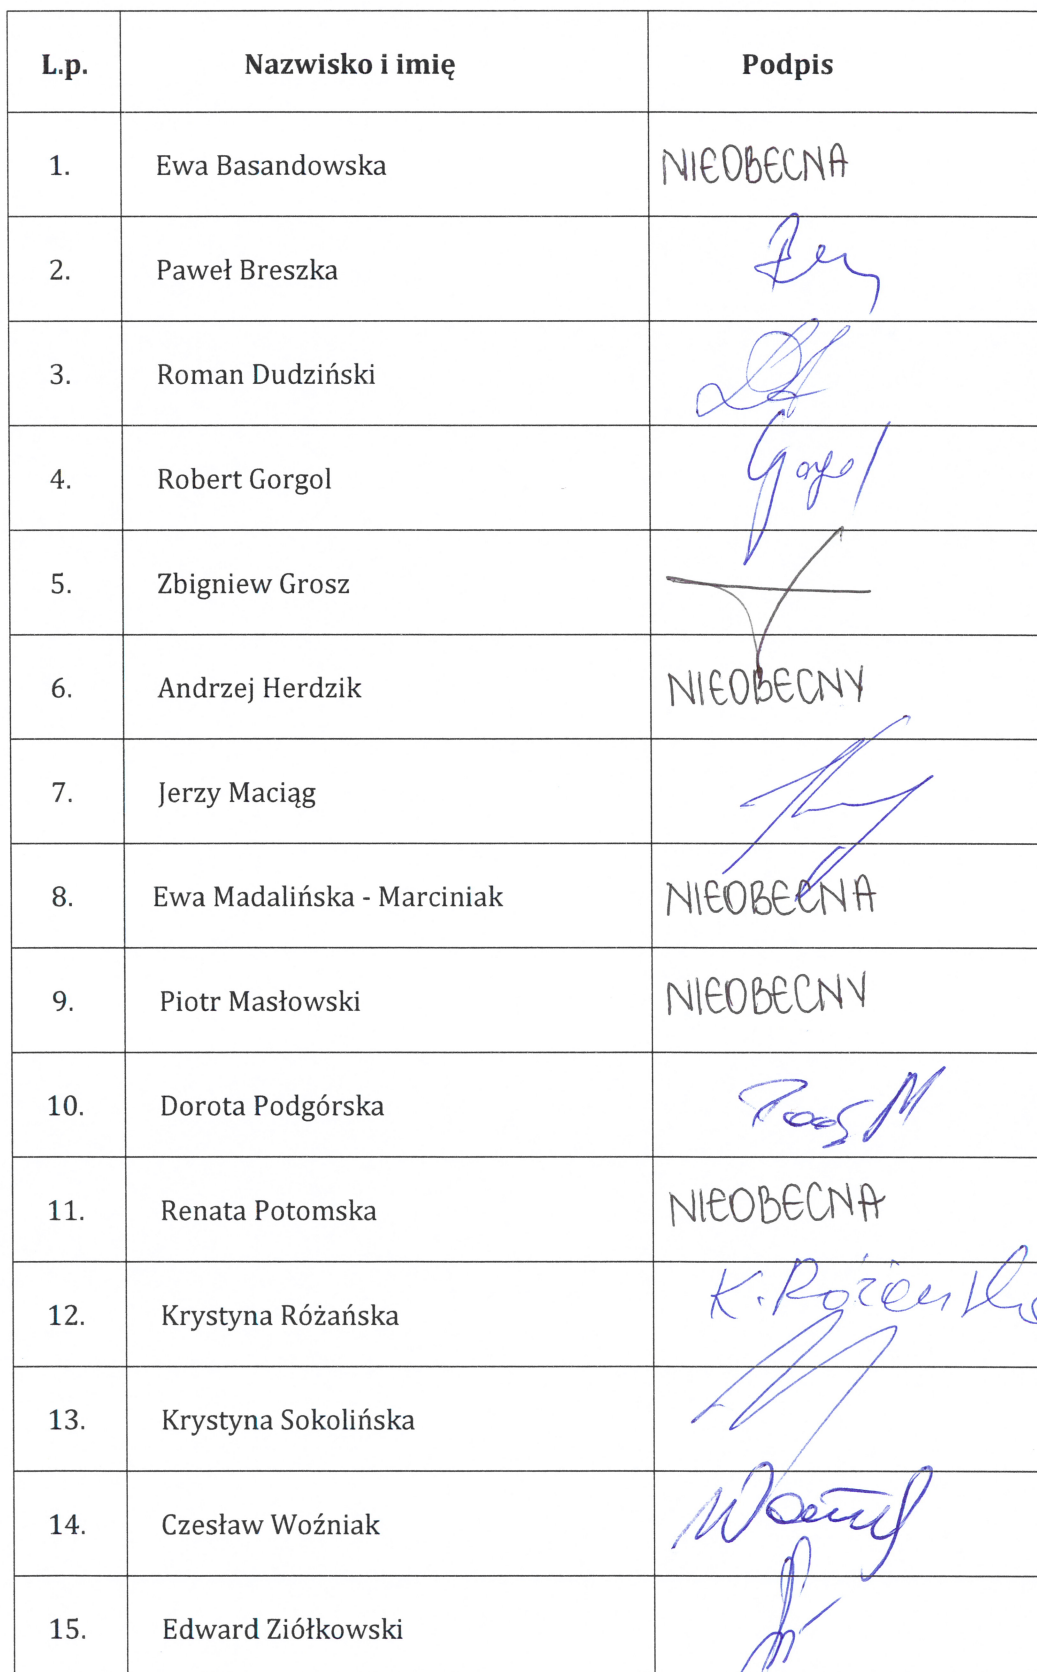 L.p. Nazwisko i imię Podpis
1. Ewa Basandowska NIEOBECNA
2. Paweł Breszka
3. Roman Dudziński
4. Robert Gorgol Gorgol
5. Zbigniew Grosz
6. Andrzej Herdzik NIEOBECNY
7. Jerzy Maciąg
8. Ewa Madalińska - Marciniak NIEOBECNA
9. Piotr Masłowski NIEOBECNY
10. Dorota Podgórska
11. Renata Potomska NIEOBECNA
12. Krystyna Różańska K. Różańska
13. Krystyna Sokolińska
14. Czesław Woźniak
15. Edward Ziółkowski